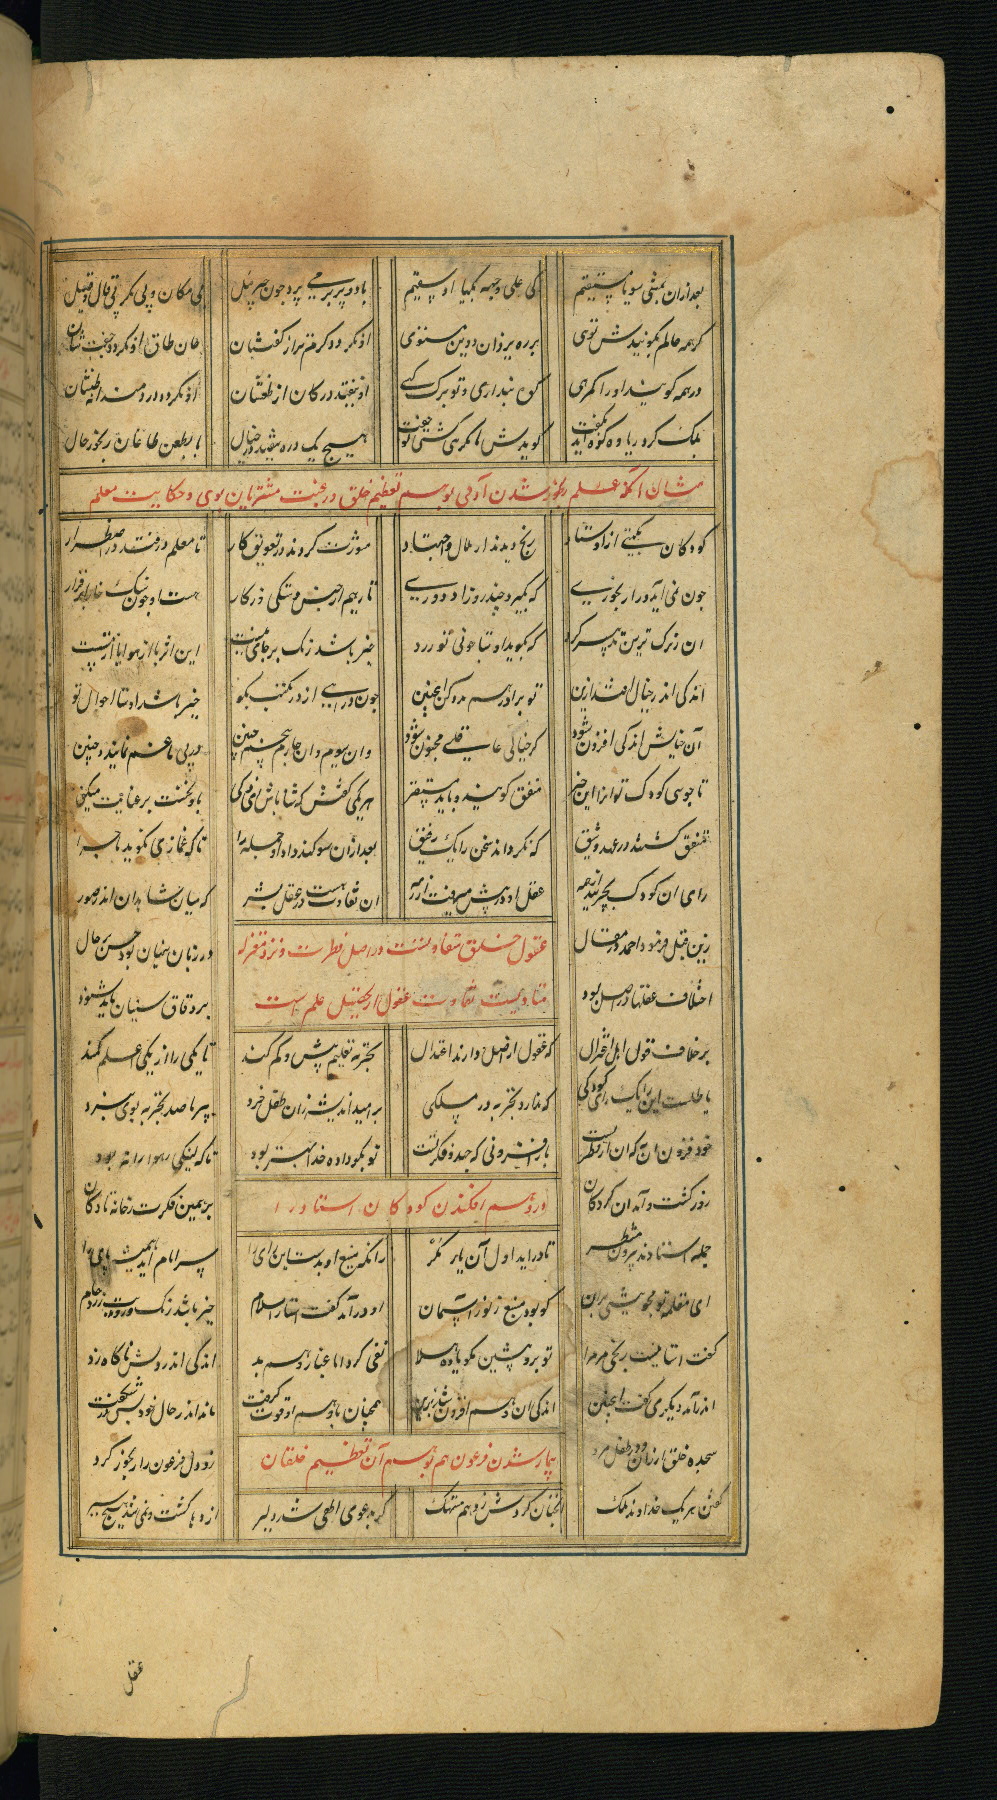 بعد ازان یمشی سویا مستقیم نی علی وجهه مکبا او سقیم با دو پر بر می پرد چون جبرئیل بی گمان و بی مگر بی قال و قیل
گر همه عالم بگویندش توی بر ره یزدان و دین مستوی او نگردد گرمتر از گفتشان جان طاق او نگردد جفتشان
ور همه گویند او را گمرهی کوه پنداری و تو برگ کهی او نیفتد در گمان از طعنشان او نگردد دردمند از
بلک گر دریا و کوه آید بگفت گویدش با گمرهی گشتی تو جفت هیچ یک ذره نیفتد در خیال یا بطعن طاعنان رنجور حال
رنجور شدن آدمی بوهم تعظیم خلق و رغبت مشتریان بوی و حکایت معلم
کودکان مکتبی از اوستاد رنج دیدند از ملال و اجتهاد مشورت کردند در تعویق کار تا معلم درفتد در اضطرار
چون نمی آید ورا رنجوریی که بگیرد چند روز او دوریی تا رهیم از حبس و تنگی و ز کار هست او چون سنگ خارا برقرار
آن زیرک ترین تدبیر کرد که بگوید اوستا چونی تو زرد خیر باشد رنگ بر جای نیست این اثر یا از هوا یا از تبیست
اندکی اندر خیال افتد ازین تو برادر هم مدد کن اینچنین چون درآیی از در مکتب بگو خیر باشد اوستا احوال تو
آن خیالش اندکی افزون شود کز خیالی عاقلی مجنون شود وان سیوم وان چارم پنجم چنین در پی ما غم نمایند و چنین
تا چو سی کودک تواتر این خبر متفق گویند و یابد مستقر هر یکی گفتش که شاباش ای ذکی باد بختت بر عنایت متکی
متفق گشتند در عهد وثیق که نگرداند سخن را یک رفیق بعد ازان سوگند داد او جمله را تا که غمازی نگوید ماجرا
رای آن کودک بچربید از همه عقل او در پیش میرفت از رمه آن تفاوت هست در عقل بشر که میان شاهدان اندر صور
زین قبل فرمود احمد در مقال در زبان پنهان بود حسن رجال
عقول خلق متفاوتست در اصل فطرت و نزد معتزله
متساویست تفاوت عقول از تحصیل علم است
اختلاف عقلها در اصل بود بر وفاق سنیان باید شنود
بر خلاف قول اهل اعتزال که عقول از اصل دارند اعتدال تجربه تعلیم بیش و کم کند تا یکی را از یکی اعلم کند
باطلست این زانک رای کودکی که ندارد تجربه در مسلکی بر دمید اندیشه زان طفل خرد پیر با صد تجربه بویی نبرد
خود فزون آن به که آن از فطرتست یا ز افزونی که جهد و فکرتست تو بگو داده خدا بهتر بود تا که لنگی راهوارانه رود
در وهم افکندن کودکان استاد را
روز گشت و آمدند آن کودکان بر همین فکرت ز خانه تا دکان
جمله استادند بیرون منتظر تا درآید اول آن یار مصر زانکه منبع او بدست این رای را سر امام آید همیشه پای را
ای مقلد تو مجو بیشی بر آن کو بود منبع ز نور آسمان او درآمد گفت استا را سلام خیر باشد رنگ رویت زرد فام
گفت استا نیست رنجی مر مرا تو برو بنشین مگو یاوه هلا نفی کرد اما غبار وهم بد اندکی اندر دلش ناگاه زد
اندر آمد دیگری گفت این چنین اندکی آن وهم افزون شد بدین همچنان تا وهم او قوت گرفت ماند اندر حال خود بس در شگفت
بیمار شدن فرعون هم بوهم از تعظیم خلقان
سجده خلق از زن و از طفل و مرد زد دل فرعون را رنجور کرد
گفتن هر یک خداوند ملک آنچنان کردش ز وهم منهتک که بدعوی الهی شد دلیر اژدها گشت و نمی شد هیچ سیر
عقل